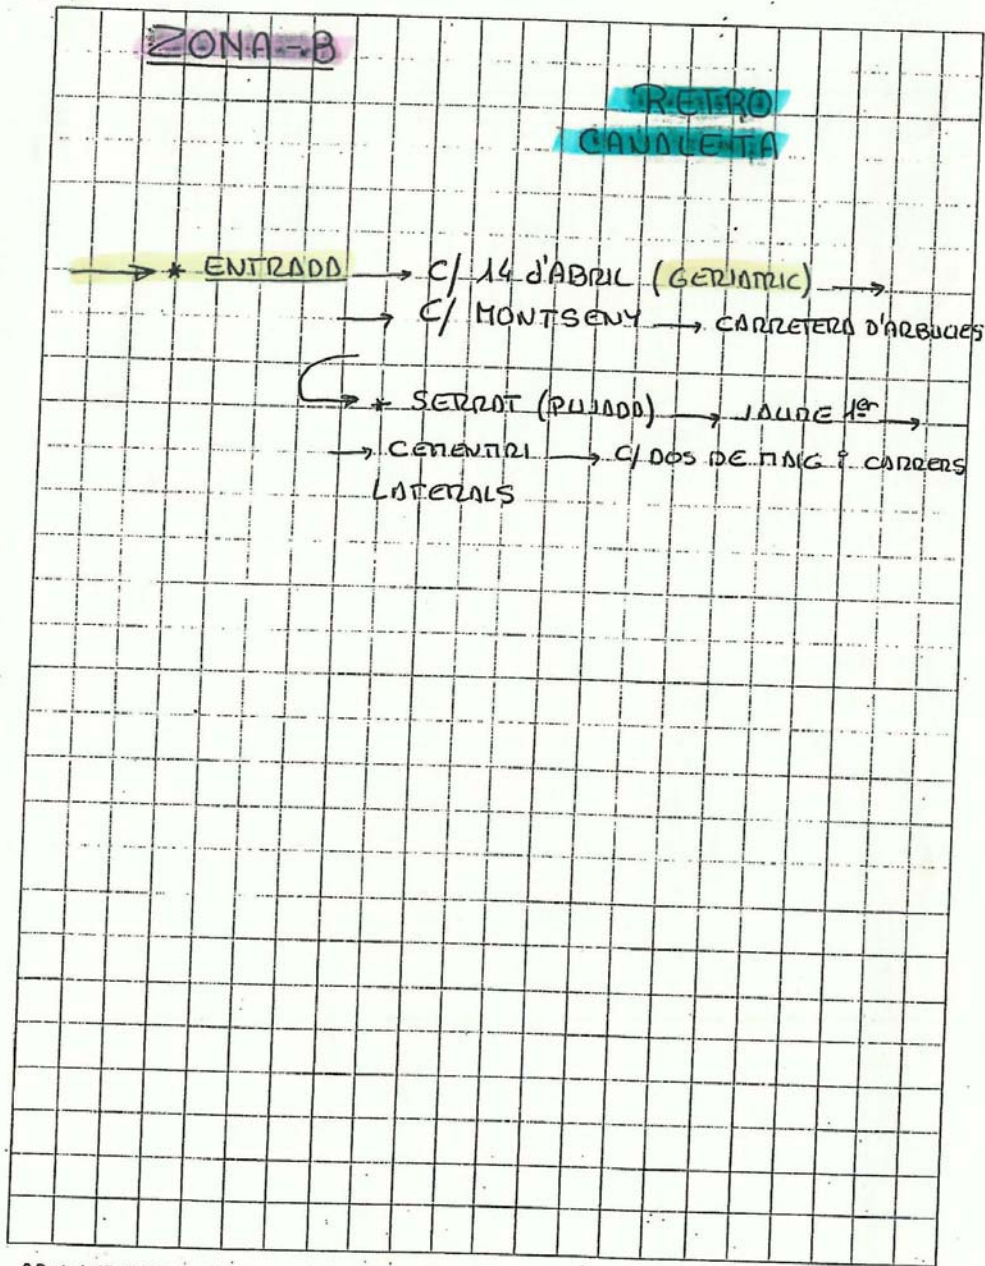 ZONA-B
RETRO
CANALETA
→ * ENTRADA → C/ 14 d'ABRIL (GERIATRIC) →
→ C/ MONTSENY → CARRETERA D'ARBUCIES
→ * SERRAT (PUJADA) → JAUME 1er →
→ CEMENTIRI → C/ DOS DE MAIG i CARRERS
LATERALS